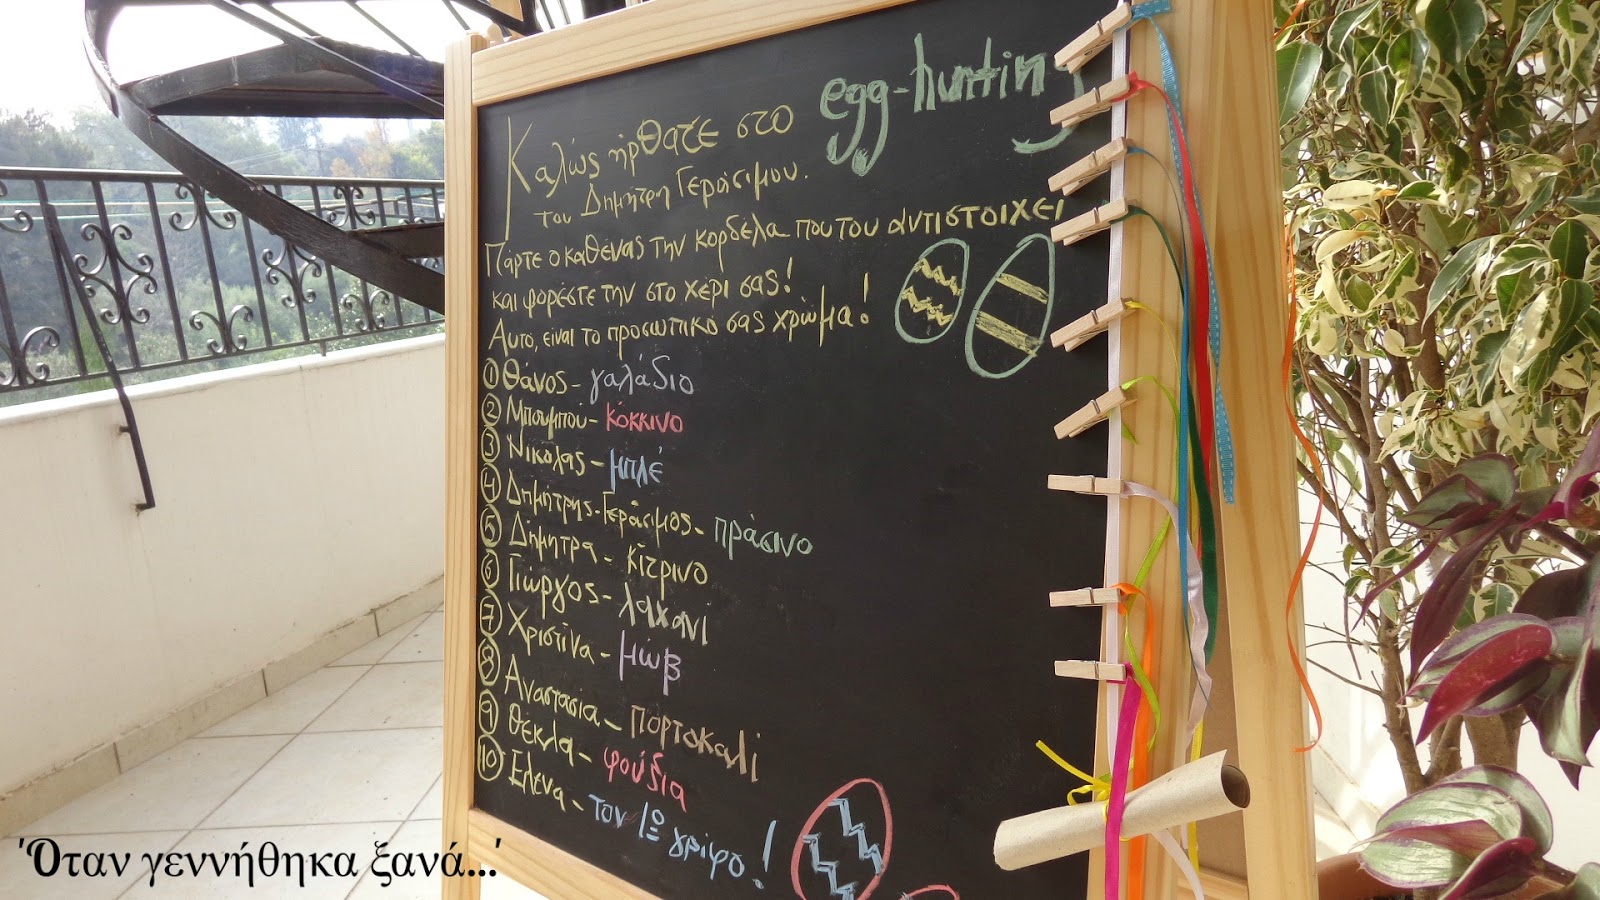 Καλώς ήρθατε στο egg-hunting
του Δημήτρη Γεράσιμου.
Πάρτε ο καθένας την κορδέλα που του αντιστοιχεί
και φορέστε την στο χέρι σας!
Αυτο, είναι το προσωπικό σας χρώμα!
① Θάνος - γαλάζιο
② Μπουμπού - κόκκινο
③ Νικόλας - μπλέ
④ Δημήτρης-Γεράσιμος - πράσινο
⑤ Δήμητρα - κίτρινο
⑥ Γιώργος - λαχανί
⑦ Χριστίνα - μώβ
⑧ Αναστασία - πορτοκαλί
⑨ Θέκλα - φούξια
⑩ Έλενα - τον 1º γρίφο!
'Όταν γεννήθηκα ξανά...'